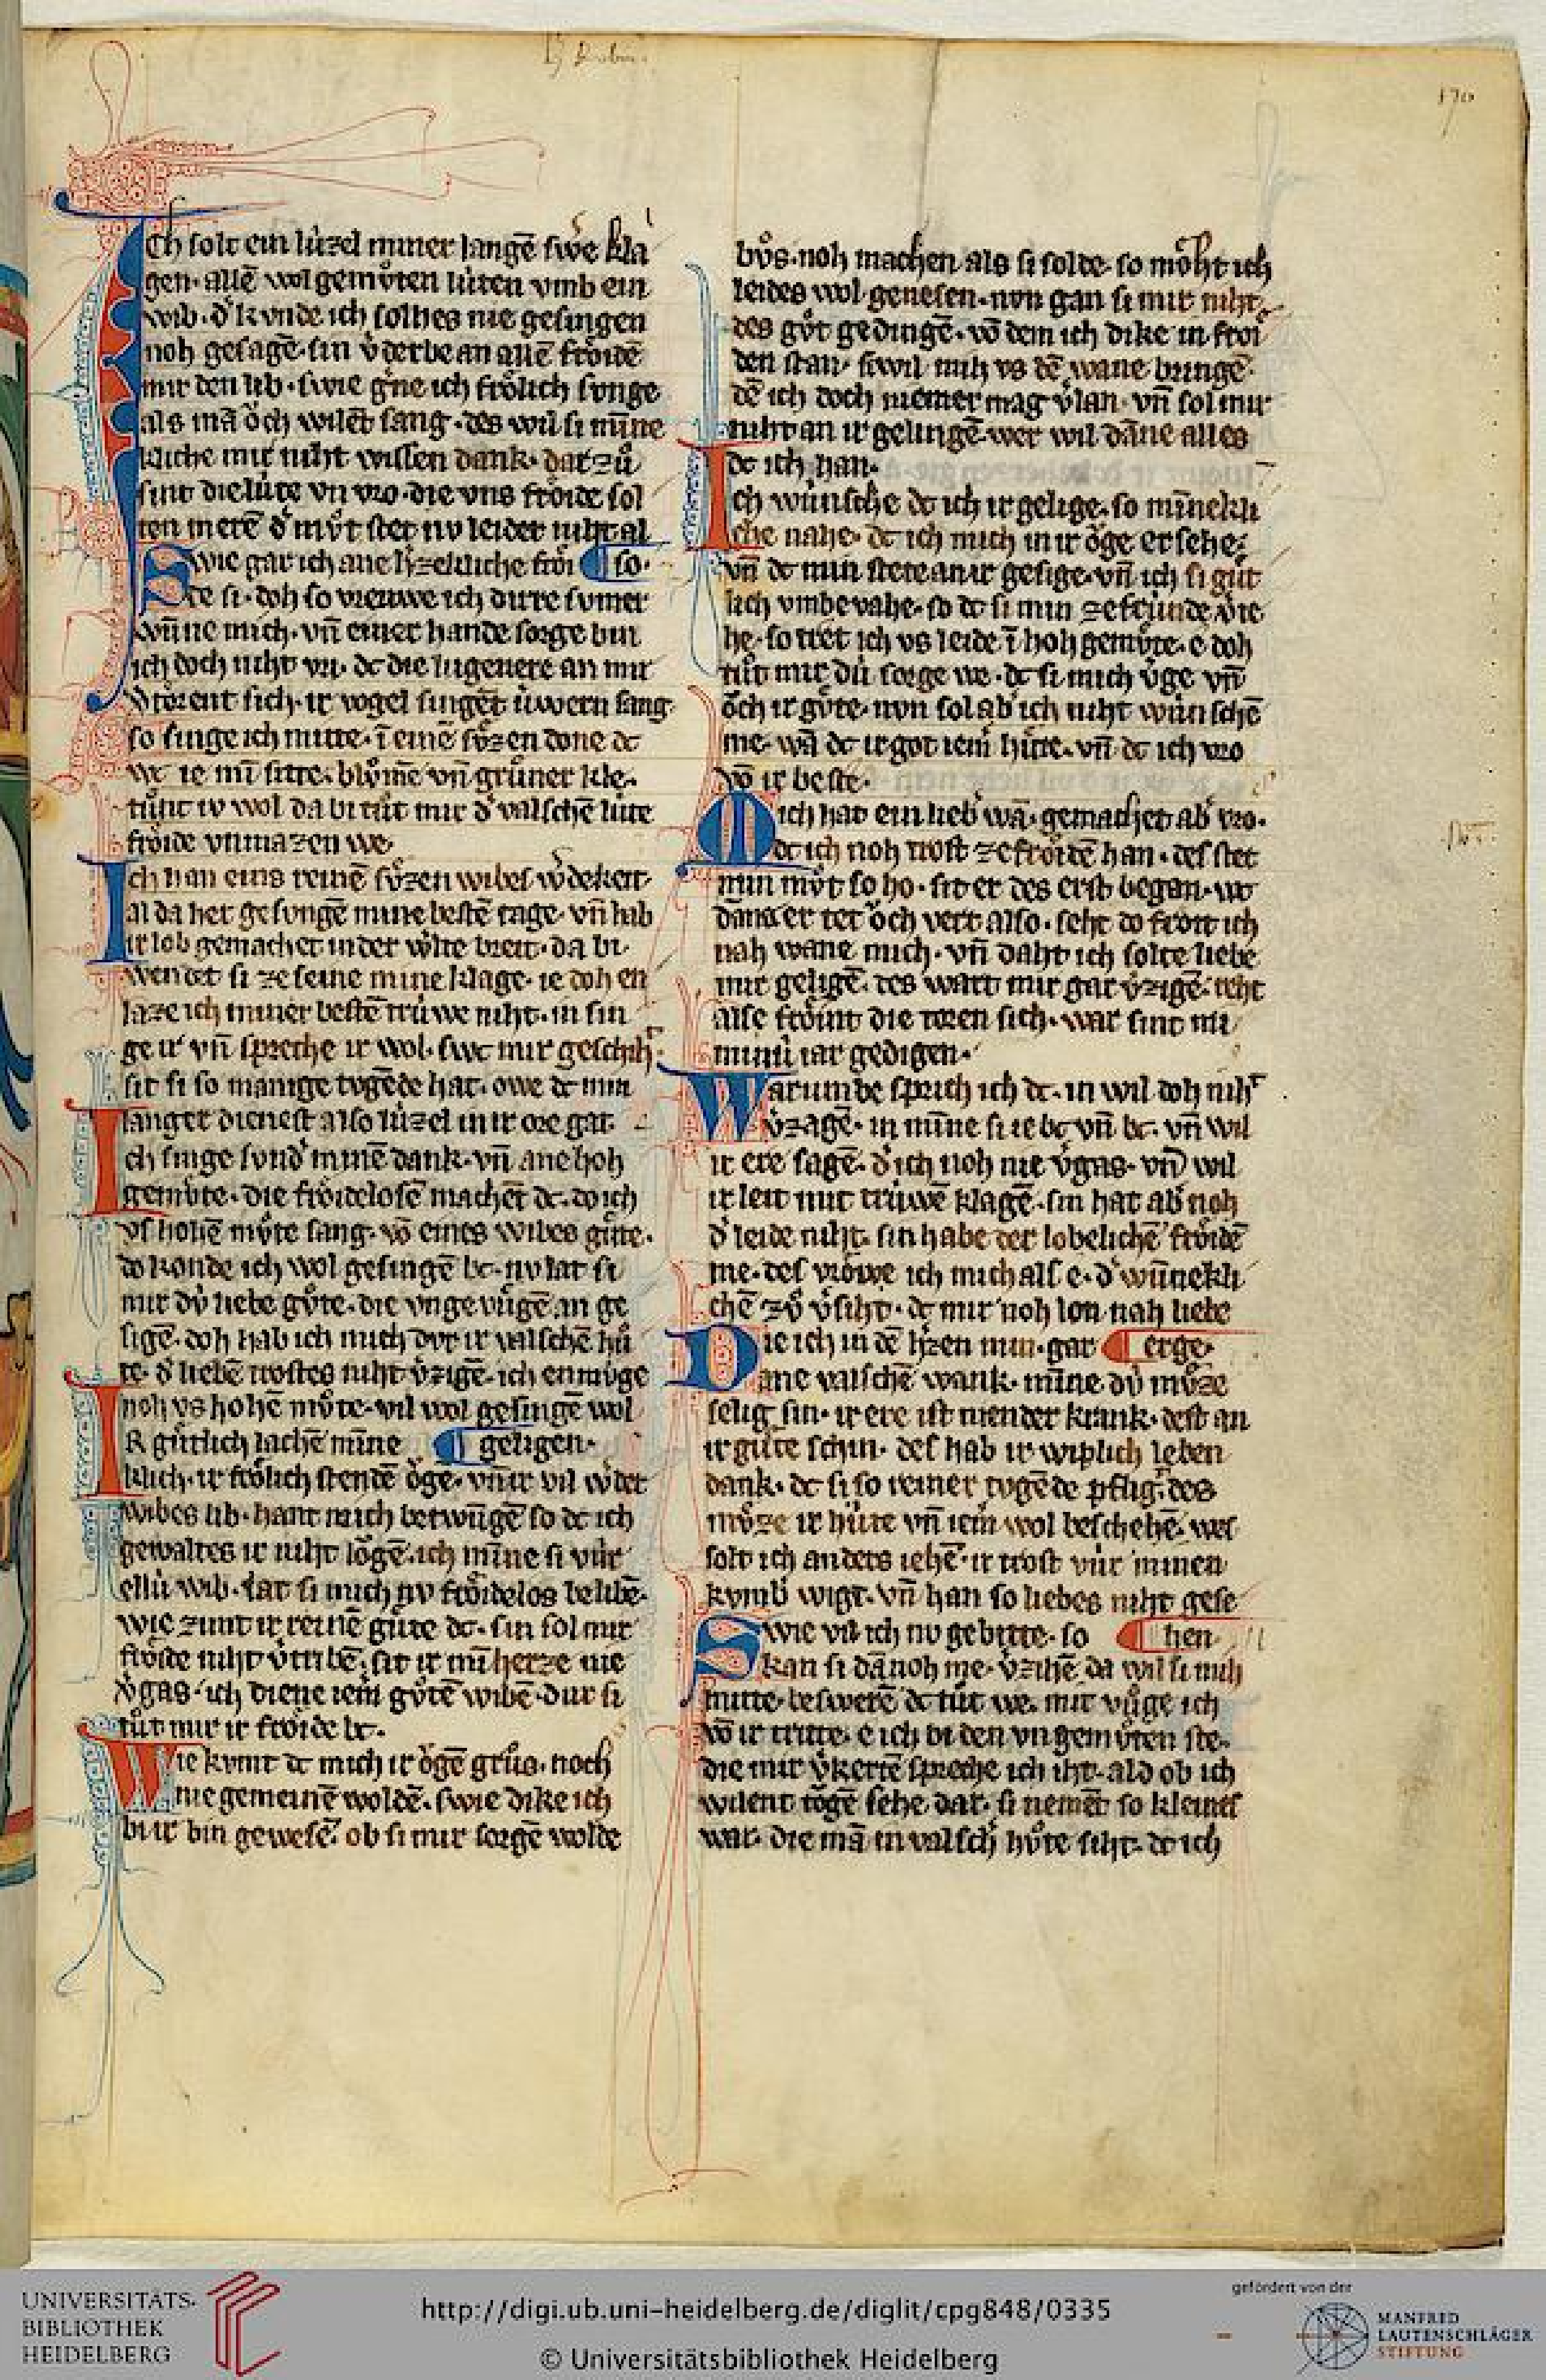 170
Ich solt ein lúzel miner langē swe kla
gen· allē wol gemv̊ten lúten vmb ein
wib· d͛ kvnde ich solhes nie gesingen
noh gesagē· sin v͛derbe an allē froͤidē
mir den lib· swie g͛ne ich froͤlich svnge
als mā oͮch wilēt sang· des wil si miñe
kliche mir niht wissen dank· dar zů
sint die lúte vn vro· die vns froͤide sol
ten merē d͛ mv̊t stet nv leider niht al
Swie gar ich ane h͛zekliche froͤi ¶ so·
de si· doh so vreuwe ich dirre svmer
wuñe mich· vn̄ einer hande sorge bin
ich doch niht vri· dc die lugenere an mir
v͛terent sich· ir vogel singēt úwern sang·
so singe ich mitte· ī einē sv̊zen done dc
wc ie mī sitte· blv̊mē vn̄ grůner kle·
tůnt iv wol da bi tůt mir d͛ valschē lúte
froͤide vnmazen we·
Ich han eins reinē sv̊zen wibes w͛dekeit
al da her gesvngē mine bestē tage· vn̄ hab
ir lob gemachet in der w͛lte breit· da bi
wendet si ze seine mine klage· ie doh en
laze ich miner bestē trúwe niht· in sin
ge ir vn̄ spreche ir wol· swc mir geschiht·
sit si so manige tvgēde hat· owe dc min
langer dienest also lúzel in ir ore gat·
Ich singe svnd͛ minē dank· vn̄ ane hoh
gemv̊te· die froͤidelosē machēt dc· do ich
vs hohē mv̊te sang· vō eines wibes gůte·
do konde ich wol gesingē bc· nv lat si
mir dv́ liebe gv̊te· die vngevůgē an ge
sigē· doh hab ich mich dvr ir valschē hů
te· d͛ liebē trostes niht v͛zigē· ich enmúge
noh vs hohē mv̊te· vil wol gesingē wol
IR gůtlich lachē miñe ¶ geligen·
klich· ir froͤlich stendē oͮge· vn̄ ir vil w͛der
wibes lib· hant mich betwūgē so dc ich
gewaltes ir niht loͮgē· ich miñe si vúr
ellú wib· lat si mich nv froͤidelos belibē·
wie zimt ir reinē gůte dc· sin sol mir
froͤide niht v͛tribē· sit ir mī herze nie
v͛gas· ich diene iem͛ gv̊tē wibē· dur si
tůt mir ir froͤide bc·
Wie kvmt dc mich ir oͮgē grůs· noch
nie gemeinē woldē· swie dike ich
bi ir bin gewesē· ob si mir sorgē wolde
bv̊s· noh machen als si solde· so moͤht ich
leides wol genesen· nvn gan si mir niht·
des gv̊t gedingē· vō dem ich dike in froͤi
den stan· si wil mih vs dē wane bringē·
dē ich doch niemer mag v͛lan· vn̄ sol mir
niht an ir gelingē· wer wil dāne alles
dc ich han·
Ich wúnsche dc ich ir gelige· so miñekli
che nahe· dc ich mich in ir oͮge ersehe·
vn̄ dc min stete an ir gesige· vn̄ ich si gůt
lich vmbevahe· so dc si min ze frúnde v͛ie
he· so tret ich vs leide· ī hoh gemv̊te· e doh
tůt mir dú sorge we· dc si mich v͛ge vn̄
oͮch ir gv̊te· nvn sol ab͛ ich niht wúnschē
me· wā dc ir got iem͛ hůte· vn̄ dc ich vro
vō ir beste·
Mich hat ein lieb wā· gemachet ab͛ vro·
dc ich noh trost ze froͤidē han· des stet
min mv̊t so ho· sit er des erst began· wc
dāne er tet oͮch vert also· seht do froͤit ich
nah wane mich· vn̄ daht ich solte liebe
mir geligē· des wart mir gar v͛zigē· reht
alse froͤint die toren sich· war sint mi
minú iar gedigen·
Warumbe sprich ich dc· in wil doh niht
v͛zagē· in miñe si ie bc vn̄ bc· vn̄ wil
ir ere sagē· d͛ ich noh nie v͛gas· vn̄ wil
ir leit mit trúwē klagē· sin hat ab͛ noh
d͛ leide niht· sin habe der lobelichē froͤidē
me· des vroͮwe ich mich alse· d͛ wuñekli
chē zů v͛siht· dc mir noh lon nah liebe
Die ich in dē h͛zen min· gar ¶ erge·
ane valschē wank· miñe dú mv̊ze
selig sin· ir ere ist niender krank· dest an
ir gůte schin· des hab ir wiplich leben
dank· dc si so reiner tvgēde pflig͛t· des
mv̊ze ir húte vn̄ iem͛ wol beschehē· wes
solt ich anders iehē· ir trost vúr minen
kvmb͛ wigt· vn̄ han so liebes niht gese
Swie vil ich nv gebitte· so ¶ hen·
kan si dānoh me· v͛zihē da wil si mih
mitte· beswerē dc tůt we· mit vůge ich
vō ir tritte· e ich bi den vngemv̊ten ste·
die mir v͛kertē spreche ich iht· ald ob ich
wilent toͮgē sehe dar· si nemēt so kleines
war· die mā in valsch͛ hv̊te siht· dc ich
UNIVERSITÄTS-
BIBLIOTHEK
HEIDELBERG
http://digi.ub.uni-heidelberg.de/diglit/cpg848/0335
© Universitätsbibliothek Heidelberg
gefördert von der
MANFRED
LAUTENSCHLÄGER
STIFTUNG